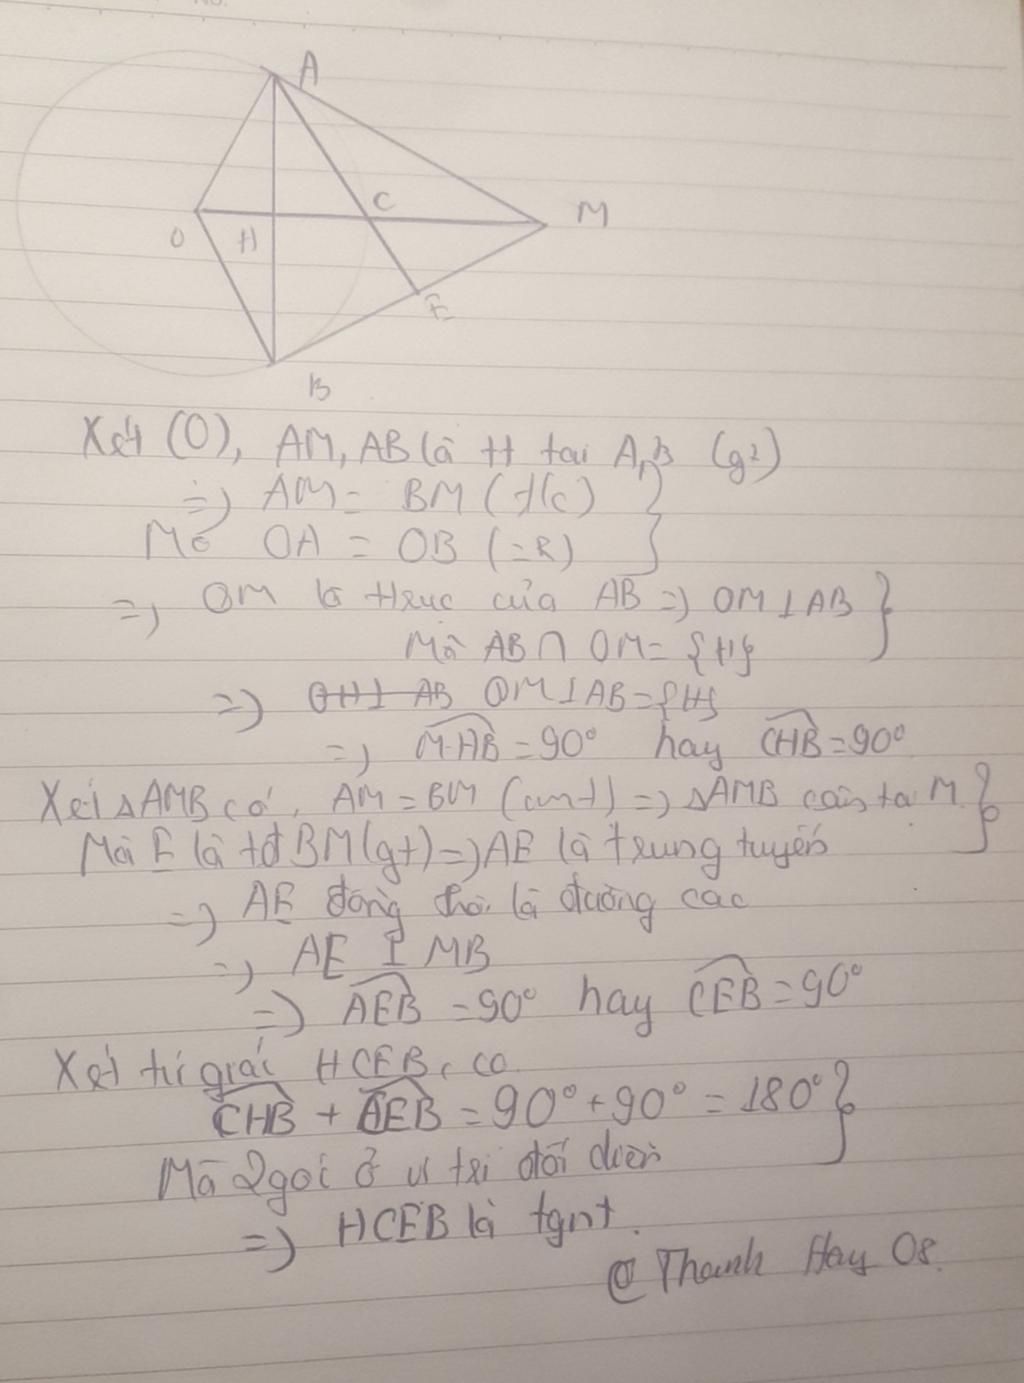 A
C
M
O
H
E
B
Xét (O), AM, AB là tt tại A, B (gt)
=> AM = BM (t/c)
Mà OA = OB (=R)
=> OM là ttrực của AB => OM ⊥ AB
Mà AB ∩ OM = {H}
=> OH ⊥ AB OM ⊥ AB = {H}
=> MHB = 90° hay CHB = 90°
Xét △AMB có, AM = BM (cmt) => △AMB cân tại M
Mà E là tđ BM (gt) => AE là trung tuyến
=> AE đồng thời là đường cao
=> AE ⊥ MB
=> AEB = 90° hay CEB = 90°
Xét tứ giác HCEB, có
CHB + CEB = 90° + 90° = 180°
Mà 2 góc ở vị trí đối diện
=> HCEB là tgnt.
@ Thanh Hay 08.